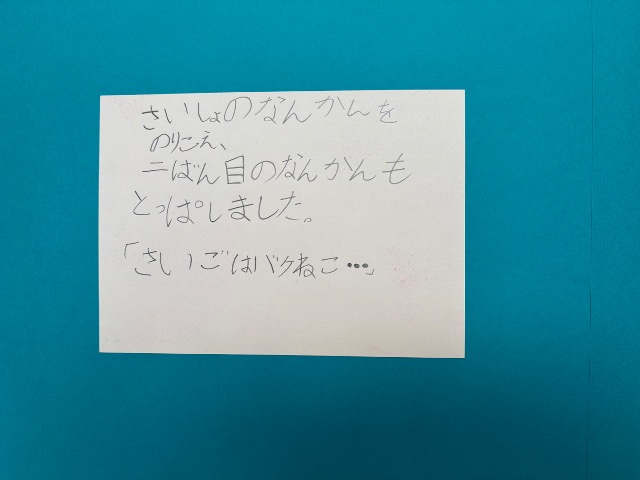 さいしょのなんかんを
のりこえ、
二ばん目のなんかんも
とっぱしました。
「さいごはバケねこ…」